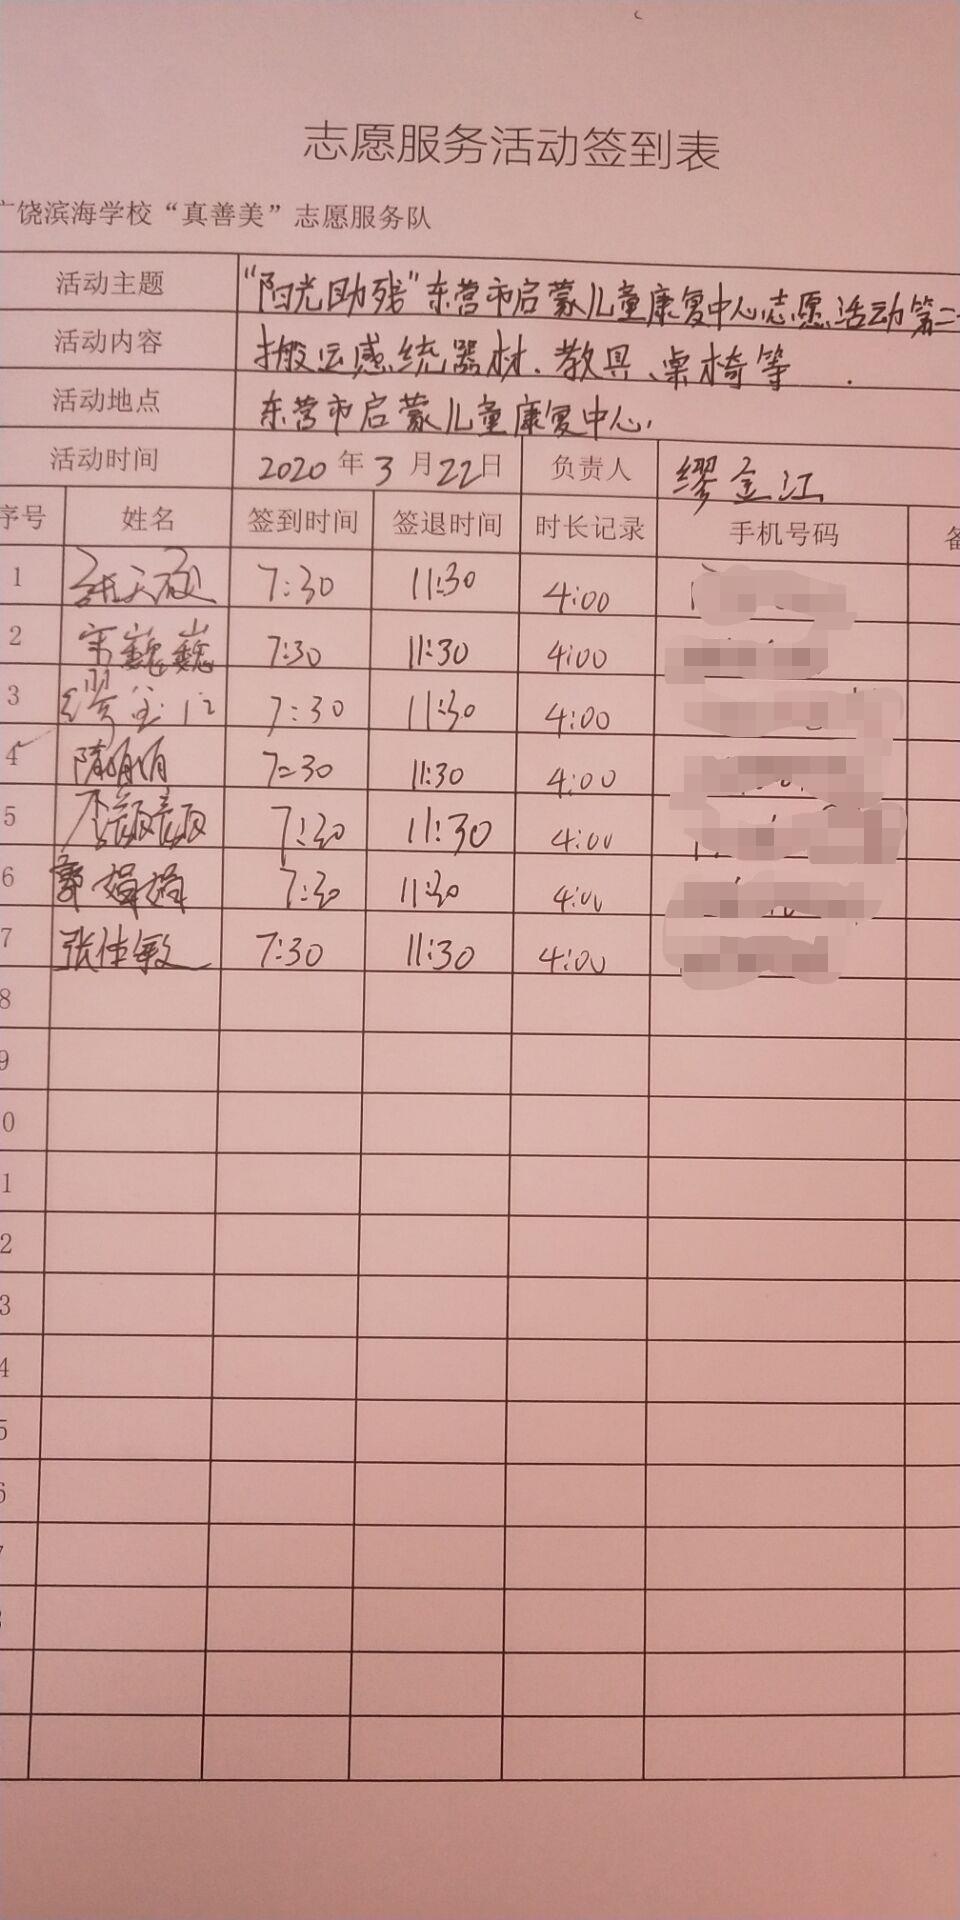 志愿服务活动签到表
饶滨海学校“真善美”志愿服务队
活动主题 “阳光助残”东营市启蒙儿童康复中心志愿活动第二
活动内容 搬运感统器材、教具、桌椅等
活动地点 东营市启蒙儿童康复中心.
活动时间 2020年3月22日 负责人 缪金江
序号 姓名 签到时间 签退时间 时长记录 手机号码 备
1 7:30 11:30 4:00
2 宋巍巍 7:30 11:30 4:00
3 缪金江 7:30 11:30 4:00
4 隋娟娟 7:30 11:30 4:00
5 7:30 11:30 4:00
6 郭娟娟 7:30 11:30 4:00
7 张佳敏 7:30 11:30 4:00
8
9
0
1
2
3
4
5
6
7